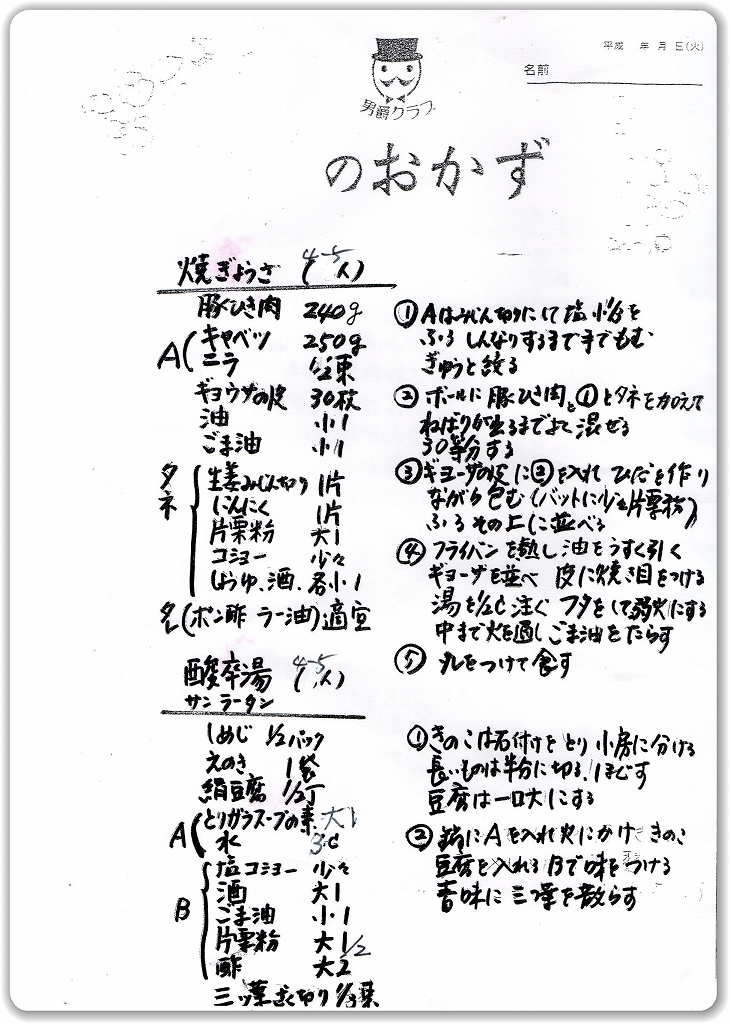 平成 年 月 日(火)
名前
男爵クラブ
のおかず
焼ぎょうざ (4-5人)
豚ひき肉 240g
A(キャベツ 250g
ニラ 1/2束
ギョウザの皮 30枚
油 小1
ごま油 小1
タネ
生姜みじん切り 1片
にんにく 1片
片栗粉 大1
コショー 少々
しょうゆ、酒、各小1
タレ(ポン酢 ラー油)適宜
①Aはみじん切りにして塩小1/2を
ふる しんなりするまで手でもむ
ぎゅうと絞る
② ボールに豚ひき肉と①とタネを加えて
ねばりが出るまでよく混ぜる
30等分する
③ギョーザの皮に②を入れ ひだを作り
ながら包む(バットに少々片栗粉)
ふる その上に並べる
④ フライパンを熱し油をうすく引く
ギョーザを並べ 皮に焼き目をつける
湯を1/2C注ぐ フタをして弱火にする
中まで火を通しごま油をたらす
⑤ タレをつけて食す
酸辛湯 (4-5人)
サンラータン
しめじ 1/2パック
えのき 1袋
絹豆腐 1/2丁
A(とりガラスープの素 大1
水 3C
B
塩コショー 少々
酒 大1
ごま油 小1
片栗粉 大1 1/2
酢 大2
三ッ葉ざく切り 1/3束
①きのこは石付けをとり 小房に分ける
長いものは半分に切る、ほぐす
豆腐は一口大にする
② 鍋にAを入れ火にかけ きのこ
豆腐を入れる Bで味をつける
青味に三つ葉を散らす